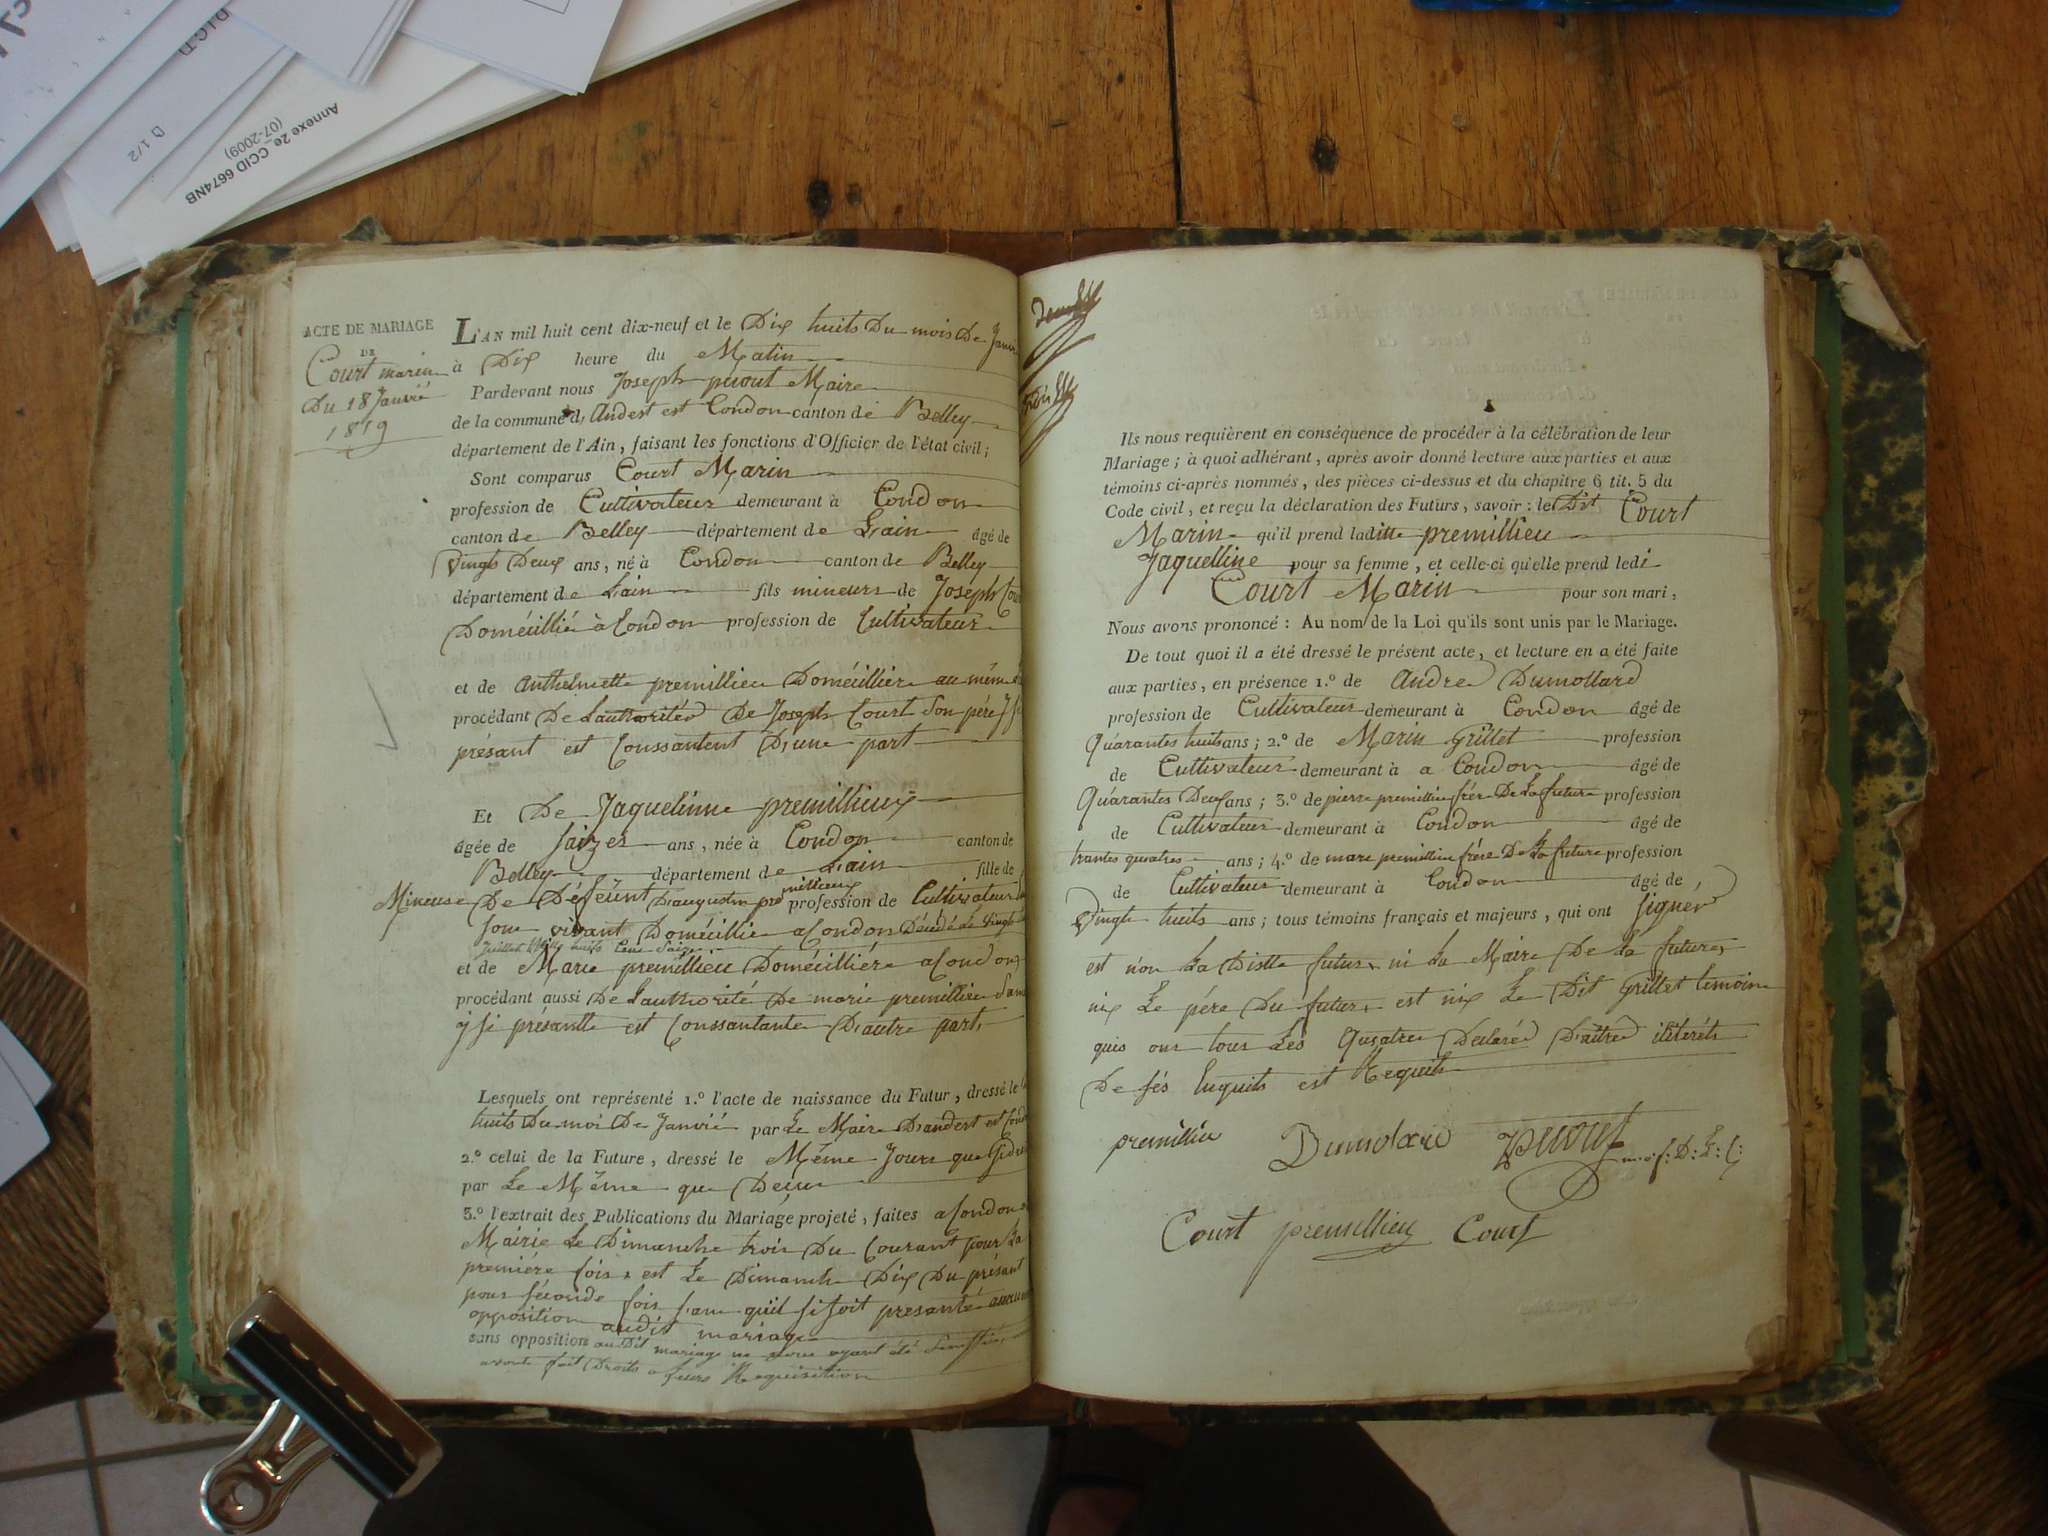 D.I.C.D
D 1/2
Annexe 2e_CCID 6674NB
(07-2009)
ACTE DE MARIAGE
DE
Court marin
Du 18 Janvié
1819
L'AN mil huit cent dix-neuf et le Dix huits Du mois De Janvié
à Dix heure du Matin
Pardevant nous Joseph Maire
de la commune d'Andest est Condon canton de Belley
département de l'Ain, faisant les fonctions d'Officier de l'état civil;
Sont comparus Court Marin
profession de Cultivateur demeurant à Condon
canton de Belley département de Lain âgé de
Vingts Deux ans, né à Condon canton de Belley
département de Lain fils mineurs de Joseph Court
Doméeillié à Condon profession de Cultivateur
et de anthelmette premillieu Doméeillière au même
procédant De Lauthorités De Joseph Court son père
présant est Conssantent D'une part
Et De Jaquelinne premillieux
âgée de saizes ans, née à Condon canton de
Belley département de Lain fille de
Mineuse De Déffeünt D'augustin premillieux profession de Cultivateur
son vivant Doméeillié a Condon Décédé le Vingt
Juillet Mille huits Cens Saize
et de Marie premillieu Doméeillière a Condon
procédant aussi De Lauthorité De marie premillieu
y si présantte est Conssantante D'autre part
Lesquels ont représenté 1.º l'acte de naissance du Futur, dressé le
huits Du moi De Janvié par Le Maire D'andest est Condon
2.º celui de la Future, dressé le Même Jours que
par Le Même que
3.º l'extrait des Publications du Mariage projeté, faites a Condon
Mairie Le Dimanche trois Du Courant pour La
première fois est Le Dimanche Dix Du présant
pour séconde fois sans quil si soit presanté aucune
opposition audit mariage
sans opposition au Dit mariage ne nous ayant été
avons fait Droits a leurs Requisition
Ils nous requièrent en conséquence de procéder à la célébration de leur
Mariage; à quoi adhérant, après avoir donné lecture aux parties et aux
témoins ci-après nommés, des pièces ci-dessus et du chapitre 6 tit. 5 du
Code civil, et reçu la déclaration des Futurs, savoir: le Dit Court
Marin qu'il prend laditte premillieu
Jaquelline pour sa femme, et celle-ci qu'elle prend ledi
Court Marin pour son mari,
Nous avons prononcé: Au nom de la Loi qu'ils sont unis par le Mariage.
De tout quoi il a été dressé le présent acte, et lecture en a été faite
aux parties, en présence 1.º de André Dumollard
profession de Cultivateur demeurant à Condon âgé de
Quarantes huits ans; 2.º de Marin Grillet profession
de Cultivateur demeurant à a Condon âgé de
Quarantes Deux ans; 3.º de pierre premillieu frère De La future profession
de Cultivateur demeurant à Condon âgé de
trantes quatres ans; 4.º de marc premillieu frère De La future profession
de Cultivateur demeurant à Condon âgé de
Vingts huits ans; tous témoins français et majeurs, qui ont signér
est non La Distte future ni La Maire De La future
nix Le père Du futur est nix Le Dit Grillet temoin
quis ons tous Les Quatre Declaré D'aitre ilitérets
De sés Enquits est Requits
premillieu
Court premillieu Court